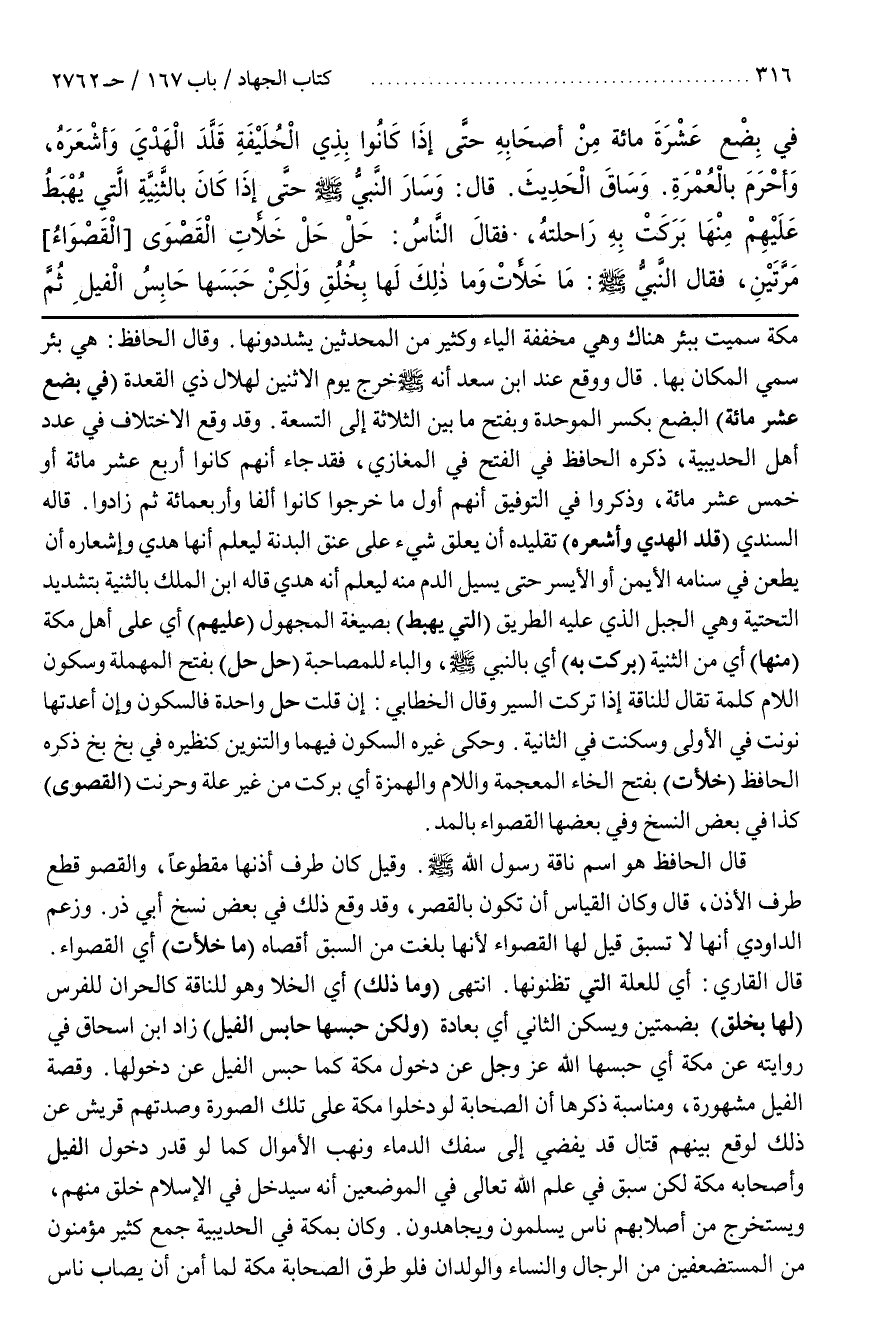 ٣١٦ ........................................ كتاب الجهاد / باب ١٦٧ / حـ ٢٧٦٢
في بِضْع عَشْرَةَ مائة مِنْ أصحَابِهِ حتَّى إذَا كَانُوا بِذِي الْحُلَيْفَةِ قَلَّدَ الْهَدْيَ وَأشْعَرَهُ،
وَأحْرَمَ بالْعُمْرَةِ. وَسَاقَ الْحَدِيثَ. قال: وَسَارَ النَّبيُّ ﷺ حتَّى إذَا كَانَ بالثَّنِيَّةِ الَّتي يُهْبَطُ
عَلَيْهِمْ مِنْهَا بَرَكَتْ بِهِ رَاحلتهُ، فقالَ النَّاسُ: حَلْ حَلْ خَلأَتِ الْقَصْوَى [الْقَصْوَاءُ]
مَرَّتَيْنِ، فقال النَّبيُّ ﷺ: مَا خَلأَتْ وَما ذٰلِكَ لَها بِخُلُقٍ وَلٰكِنْ حَبَسَها حَابِسُ الْفيلِ ثُمَّ
مكة سميت ببئر هناك وهي مخففة الياء وكثير من المحدثين يشددونها. وقال الحافظ: هي بئر
سمي المكان بها. قال ووقع عند ابن سعد أنه ﷺ خرج يوم الاثنين لهلال ذي القعدة (في بضع
عشر مائة) البضع بكسر الموحدة وبفتح ما بين الثلاثة إلى التسعة. وقد وقع الاختلاف في عدد
أهل الحديبية، ذكره الحافظ في الفتح في المغازي، فقد جاء أنهم كانوا أربع عشر مائة أو
خمس عشر مائة، وذكروا في التوفيق أنهم أول ما خرجوا كانوا ألفا وأربعمائة ثم زادوا. قاله
السندي (قلد الهدي وأشعره) تقليده أن يعلق شيء على عنق البدنة ليعلم أنها هدي وإشعاره أن
يطعن في سنامه الأيمن أو الأيسر حتى يسيل الدم منه ليعلم أنه هدي قاله ابن الملك بالثنية بتشديد
التحتية وهي الجبل الذي عليه الطريق (التي يهبط) بصيغة المجهول (عليهم) أي على أهل مكة
(منها) أي من الثنية (بركت به) أي بالنبي ﷺ، والباء للمصاحبة (حل حل) بفتح المهملة وسكون
اللام كلمة تقال للناقة إذا تركت السير وقال الخطابي: إن قلت حل واحدة فالسكون وإن أعدتها
نونت في الأولى وسكنت في الثانية. وحكى غيره السكون فيهما والتنوين كنظيره في بخ بخ ذكره
الحافظ (خلأت) بفتح الخاء المعجمة واللام والهمزة أي بركت من غير علة وحرنت (القصوى)
كذا في بعض النسخ وفي بعضها القصواء بالمد.
قال الحافظ هو اسم ناقة رسول الله ﷺ. وقيل كان طرف أذنها مقطوعاً، والقصو قطع
طرف الأذن، قال وكان القياس أن تكون بالقصر، وقد وقع ذلك في بعض نسخ أبي ذر. وزعم
الداودي أنها لا تسبق قيل لها القصواء لأنها بلغت من السبق أقصاه (ما خلأت) أي القصواء.
قال القاري: أي للعلة التي تظنونها. انتهى (وما ذلك) أي الخلا وهو للناقة كالحران للفرس
(لها بخلق) بضمتين ويسكن الثاني أي بعادة (ولكن حبسها حابس الفيل) زاد ابن اسحاق في
روايته عن مكة أي حبسها الله عز وجل عن دخول مكة كما حبس الفيل عن دخولها. وقصة
الفيل مشهورة، ومناسبة ذكرها أن الصحابة لو دخلوا مكة على تلك الصورة وصدتهم قريش عن
ذلك لوقع بينهم قتال قد يفضي إلى سفك الدماء ونهب الأموال كما لو قدر دخول الفيل
وأصحابه مكة لكن سبق في علم الله تعالى في الموضعين أنه سيدخل في الإسلام خلق منهم،
ويستخرج من أصلابهم ناس يسلمون ويجاهدون. وكان بمكة في الحديبية جمع كثير مؤمنون
من المستضعفين من الرجال والنساء والولدان فلو طرق الصحابة مكة لما أمن أن يصاب ناس